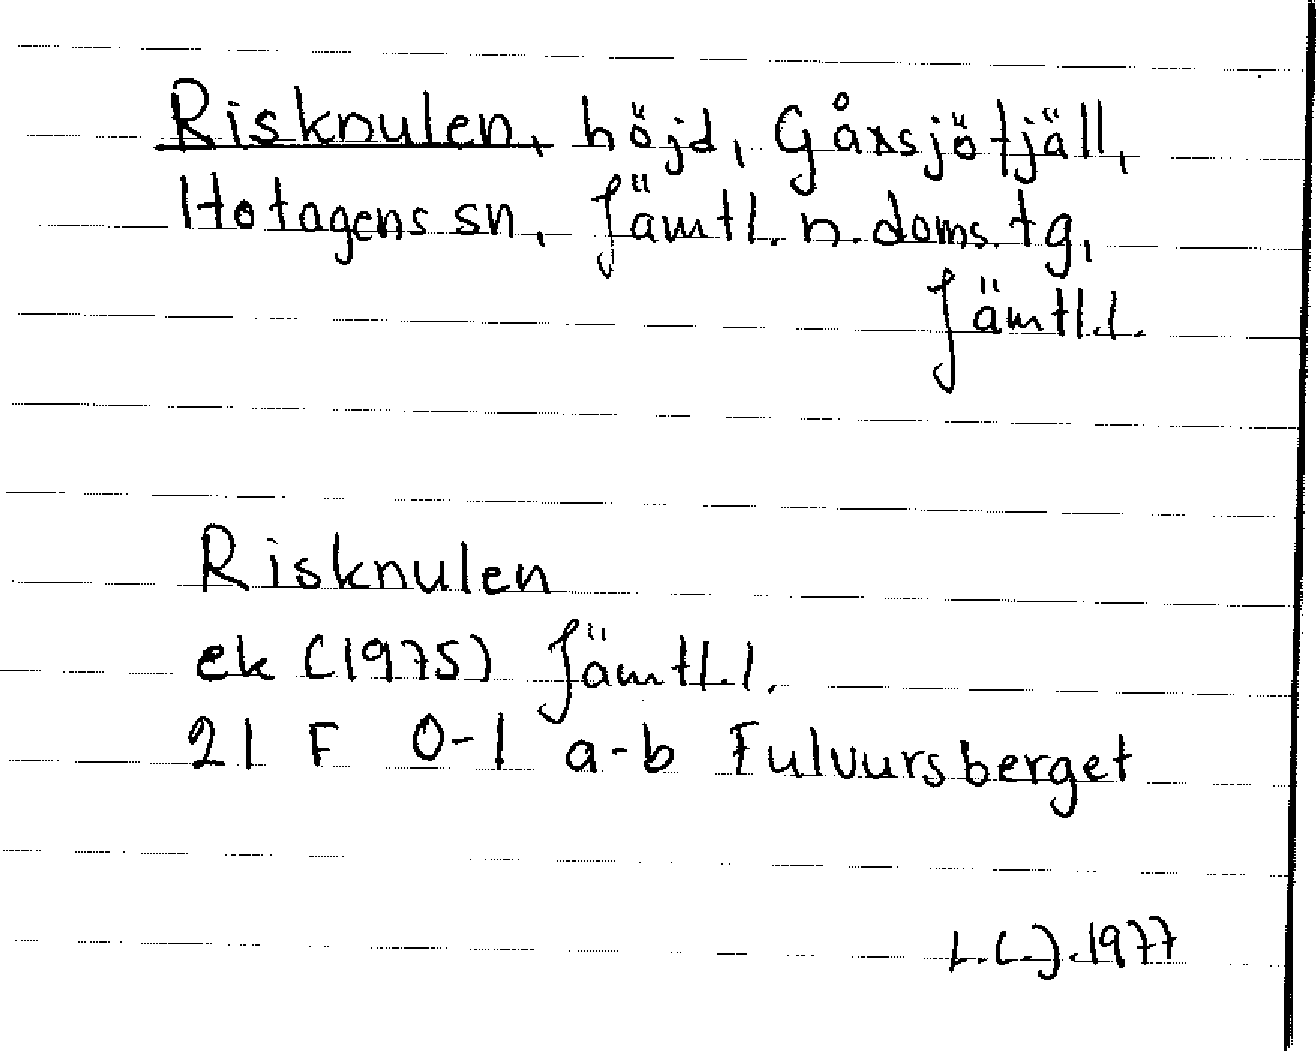 Risknulen, höjd, Gåxsjöfjäll,
Hotagens sn, Jämtl. n. doms. tg,
Jämtl.l.
Risknulen
ek (1975) Jämtl.l.
21 F 0-1 a-b Fulvursberget
1977